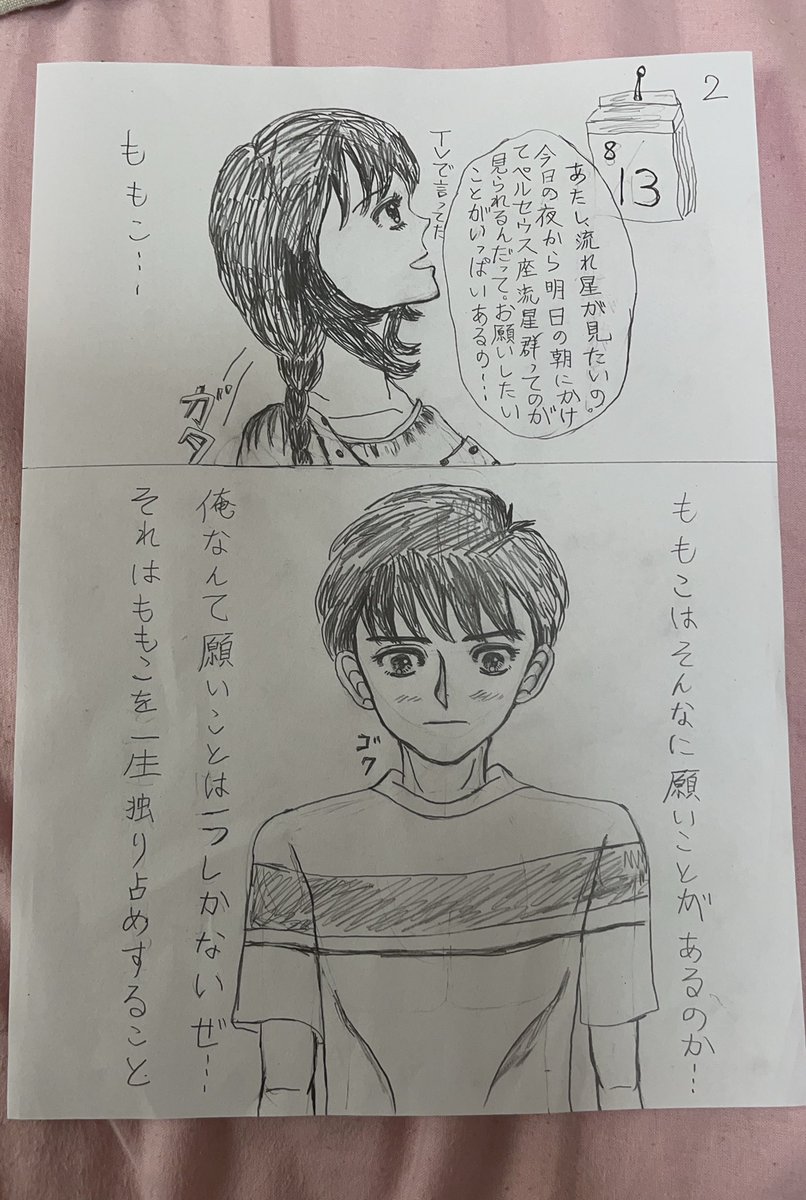 2
8
13
あたし、流れ星が見たいの。
今日の夜から明日の朝にかけ
てペルセウス座流星群ってのが
見られるんだって。お願いしたい
ことがいっぱいあるの…
TVで言ってた
ももこ…
ガタ
ももこはそんなに願いことがあるのか…
ゴク
俺なんて願いことは一つしかないぜ…
それはももこを一生独り占めすること